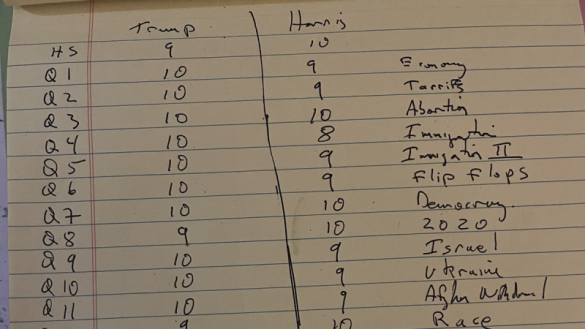 Trump Harris
HS 9 10
Q1 10 9 Economy
Q2 10 9 Tarrifs
Q3 10 10 Abortion
Q4 10 8 Immigration
Q5 10 9 Immigration II
Q6 10 9 Flip Flops
Q7 10 10 Democracy
Q8 9 10 2020
Q9 10 9 Israel
Q10 10 9 Ukraine
Q11 10 9
9 10 Race